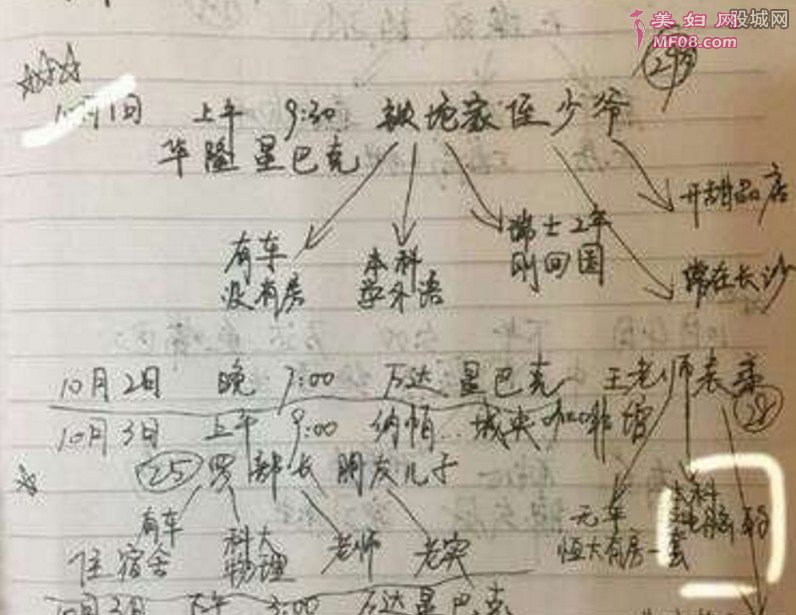 美妇网
MF08.com
股城网
29
10月1日 上午 9:30 家侄少爷
华隆星巴克
开甜品店
瑞士2年
刚回国
有车
没有房
本科
学外语
常在长沙
10月2日 晚 7:00 万达星巴克 王老师表亲
28
10月3日 上午 9:00 纳帕 城央咖啡馆
25 罗部长 朋友儿子
有车
住宿舍
科大
物理
老师
老实
无车
恒大有房一套
本科
10月3日 下午 3:00 万达星巴克